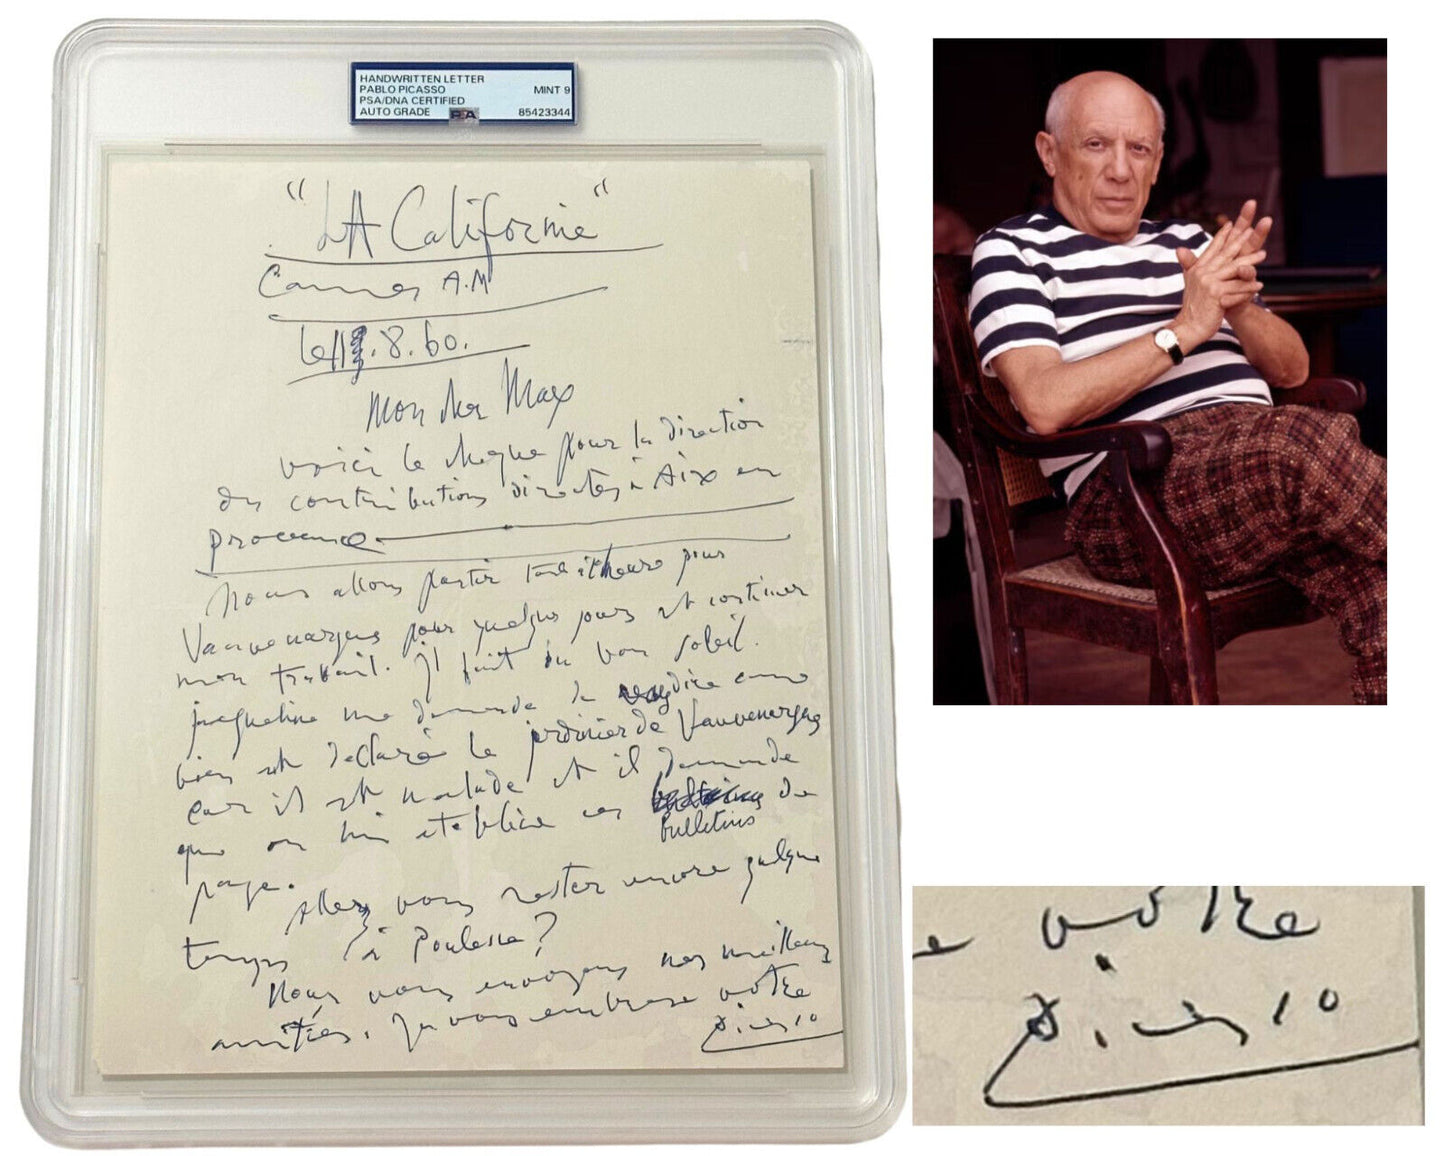 HANDWRITTEN LETTER
PABLO PICASSO
PSA/DNA CERTIFIED
AUTO GRADE PSA
MINT 9
85423344
"LA Californie"
Cannes A.M
le . 8. 60.
Mon cher Max
voici le cheque pour la direction
des contributions directes à Aix en
provence
Nous allons partir tout à l'heure pour
Vauvenargues pour quelques jours et continuer
mon travail. Il fait un bon soleil.
jacqueline me demande de dire
bien est declaré le jardinier de Vauvenargues
car il est malade et il demande
que on lui etablice ces de
bulletins
paye.
Allez vous rester encore quelque
temps à ?
Nous vous envoyons nos meilleurs
amitiés. Je vous embrasse votre
Picasso
e votre
Picasso